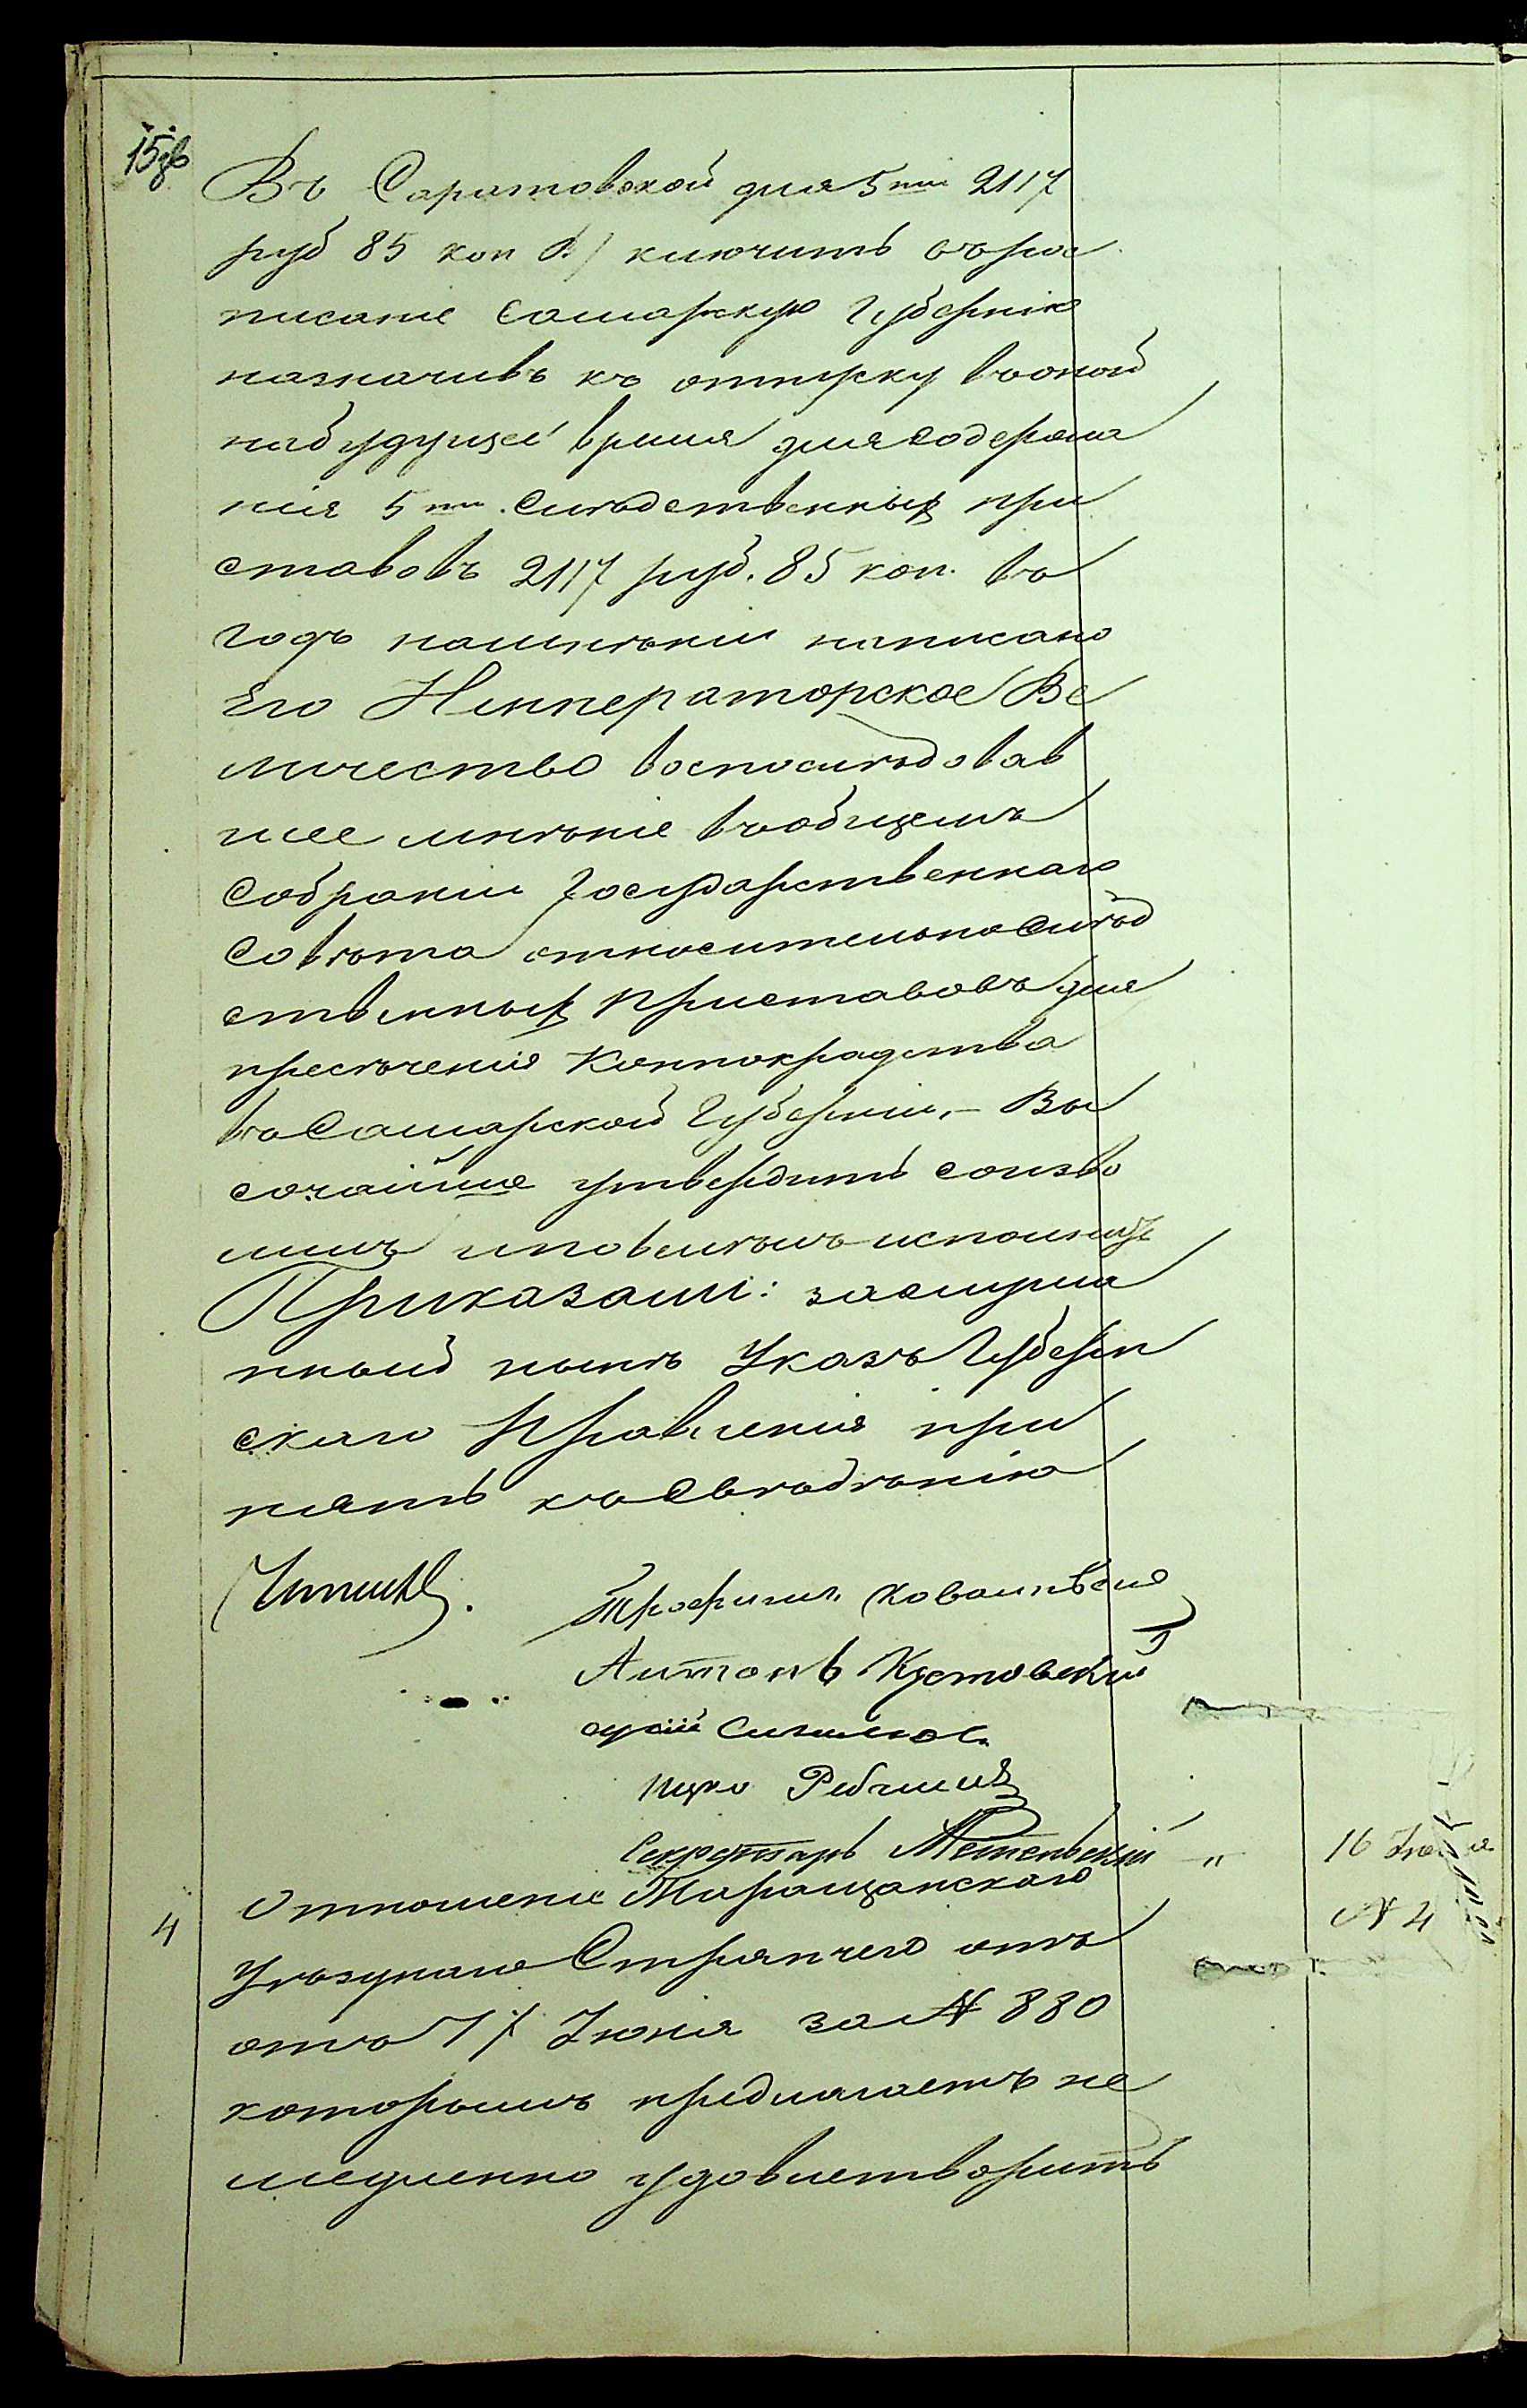 Въ Саратовской для 5ти 2117
руб 85 коп В/ ключить въ рос
писание Самарскую Губернію
назначивъ къ отпуску въ оной
на будущее время для Содержа
нія 5ти Слѣдственныхъ при
ставовъ 2117 руб. 85 коп. въ
годъ на мнѣніи написано
Его Императорское Ве
личество воспослѣдовав
шее мнѣніе въ общемъ
Собраніи Государственнаго
Совѣта относительно Слѣд
ственныхъ приставовъ для
пресѣченія Конокрадства
въ Самарской Губерніи, – Вы
сочайше утвердить соизво
лилъ и повелѣлъ исполнить
Приказали: заслуша
нный нынѣ Указъ Губерн
скаго Правленія при
нять къ Свѣдѣнію
Трофимъ
Антонъ
Секретарь
4
Отношеніе Таращанскаго
Уѣзднаго Стряпчего отъ
отъ 17 Іюня за № 880
которымъ предлагаетъ не
медленно удовлетворить
16 Іюня
№ 4